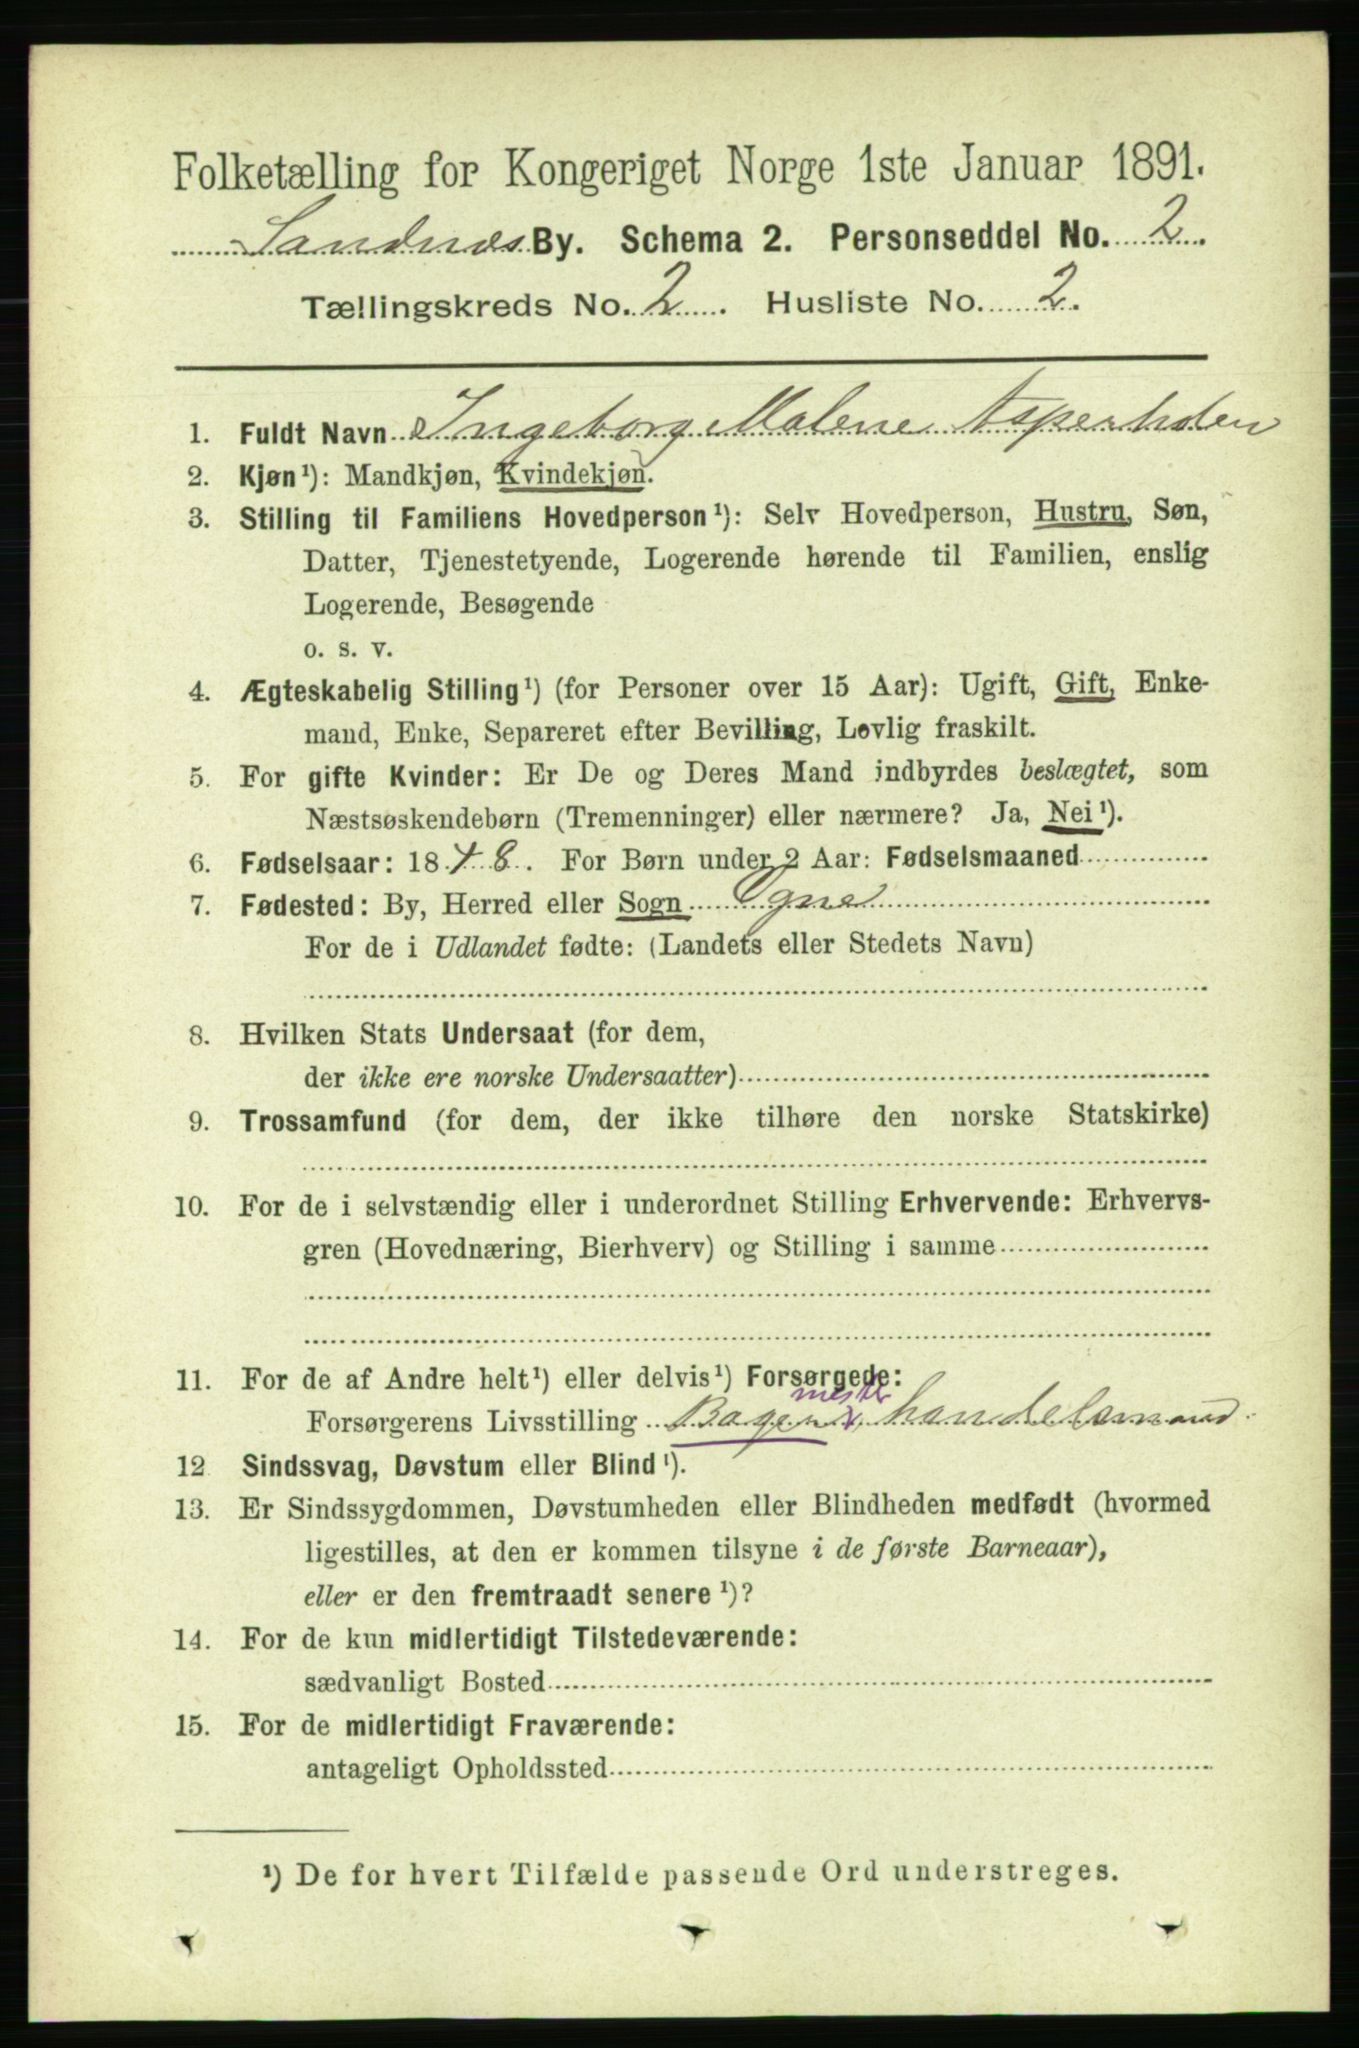 Folketælling for Kongeriget Norge 1ste Januar 1891.
Sandnæs By. Schema 2. Personseddel No. 2.
Tællingskreds No. 2. Husliste No. 2.
1. Fuldt Navn Ingeborg Malene Asperholen
2. Kjøn¹): Mandkjøn, Kvindekjøn.
3. Stilling til Familiens Hovedperson¹): Selv Hovedperson, Hustru, Søn,
Datter, Tjenestetyende, Logerende hørende til Familien, enslig
Logerende, Besøgende
o. s. v.
4. Ægteskabelig Stilling¹) (for Personer over 15 Aar): Ugift, Gift, Enke-
mand, Enke, Separeret efter Bevilling, Lovlig fraskilt.
5. For gifte Kvinder: Er De og Deres Mand indbyrdes beslægtet, som
Næstsøskendebørn (Tremenninger) eller nærmere? Ja, Nei¹).
6. Fødselsaar: 1848. For Børn under 2 Aar: Fødselsmaaned
7. Fødested: By, Herred eller Sogn Ogne
For de i Udlandet fødte: (Landets eller Stedets Navn)
8. Hvilken Stats Undersaat (for dem,
der ikke ere norske Undersaatter)
9. Trossamfund (for dem, der ikke tilhøre den norske Statskirke)
10. For de i selvstændig eller i underordnet Stilling Erhvervende: Erhvervs-
gren (Hovednæring, Bierhverv) og Stilling i samme
11. For de af Andre helt¹) eller delvis¹) Forsørgede:
mester
Forsørgerens Livsstilling Bager, handelsmand.
12 Sindssvag, Døvstum eller Blind¹).
13. Er Sindssygdommen, Døvstumheden eller Blindheden medfødt (hvormed
ligestilles, at den er kommen tilsyne i de første Barneaar),
eller er den fremtraadt senere¹)?
14. For de kun midlertidigt Tilstedeværende:
sædvanligt Bosted
15. For de midlertidigt Fraværende:
antageligt Opholdssted
¹) De for hvert Tilfælde passende Ord understreges.